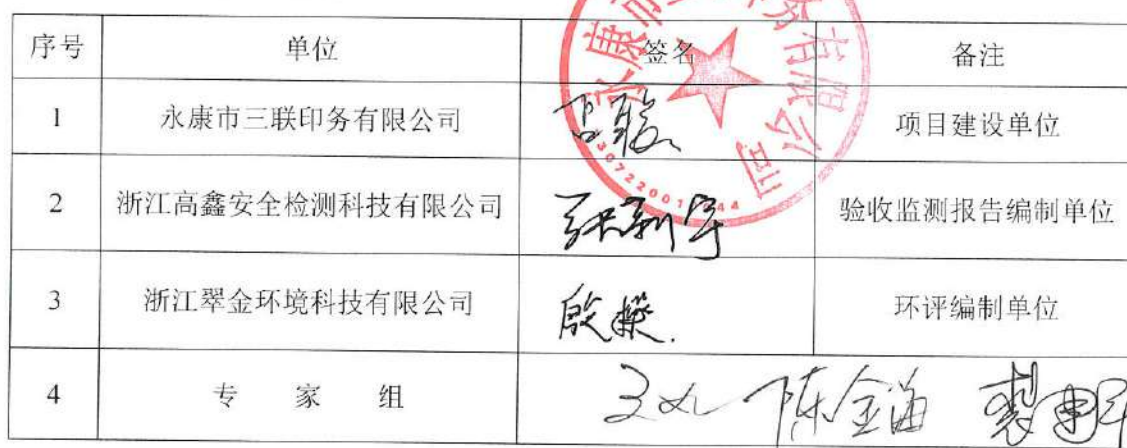 序号 单位 签名 备注
1 永康市三联印务有限公司 项目建设单位
2 浙江高鑫安全检测科技有限公司 张新宇 验收监测报告编制单位
3 浙江翠金环境科技有限公司 环评编制单位
4 专家组 陈金海
永康市 务有限公司